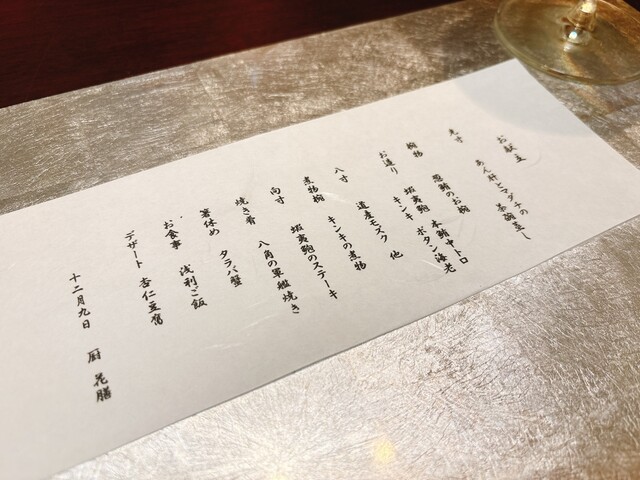 お献立
先寸 あん肝とマダチの茶碗蒸し
椀物 葱鮪のお椀
お造り 本鮪中トロ ボタン海老
蝦夷鮑 キンキ 他
八寸 道産モズク
煮物椀 キンキの煮物
向寸 蝦夷鮑のステーキ
焼き肴 八角の軍艦焼き
箸休め タラバ蟹
お食事 浅利ご飯
デザート 杏仁豆腐
十二月九日 厨 花膳